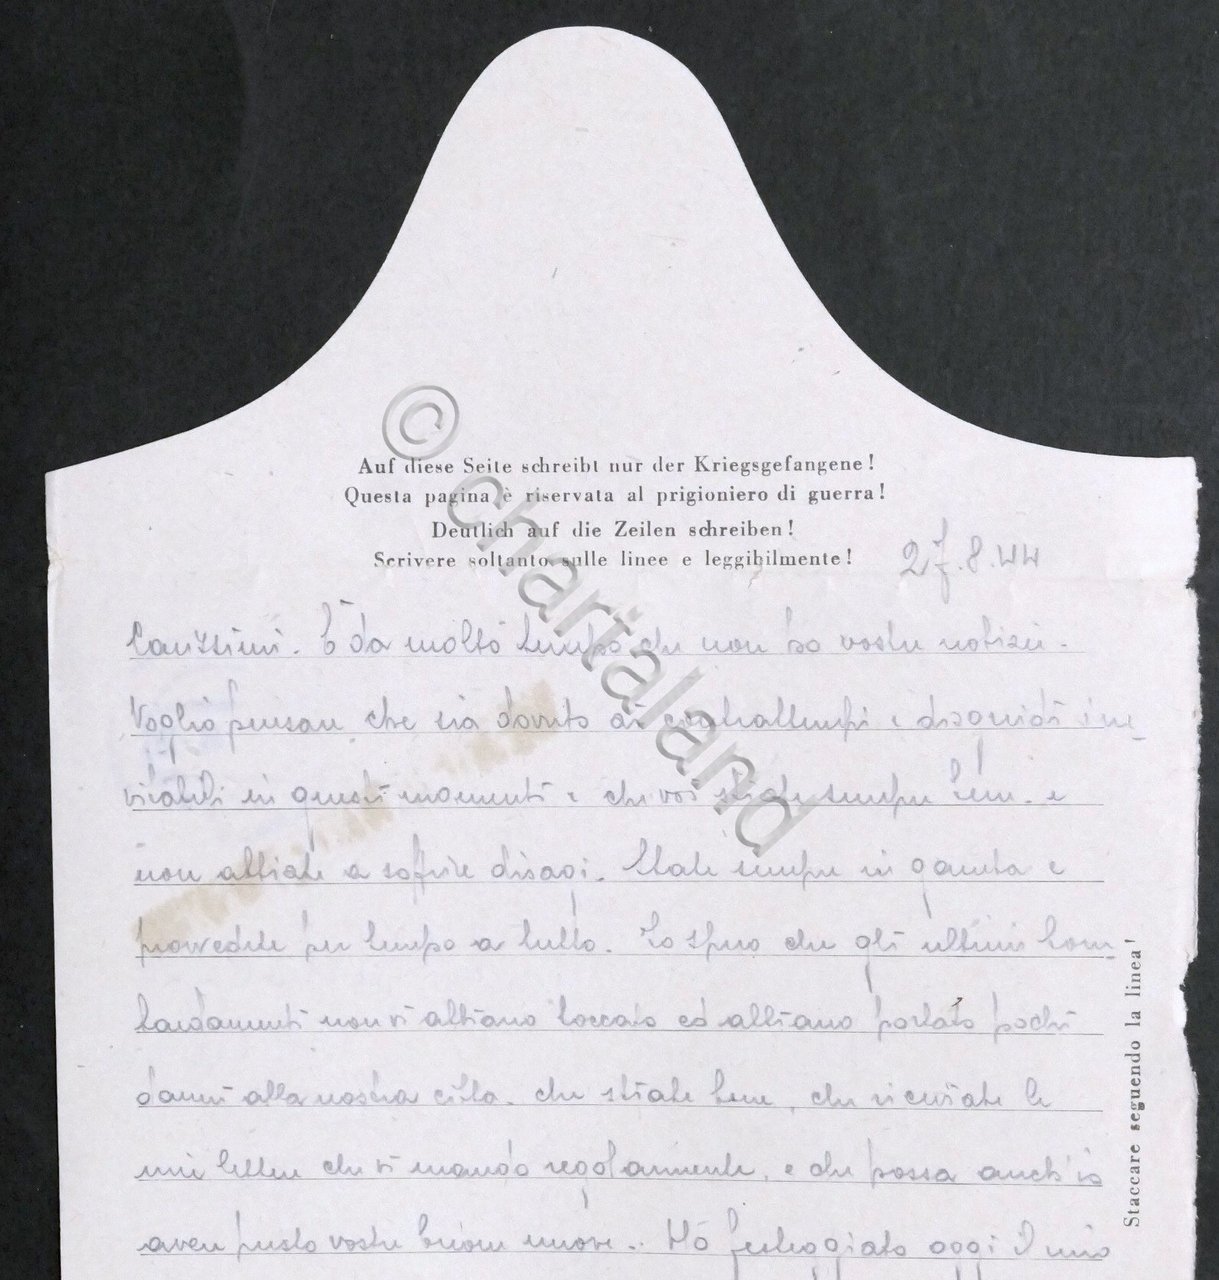 Auf diese Seite schreibt nur der Kriegsgefangene!
Questa pagina è riservata al prigioniero di guerra!
Deutlich auf die Zeilen schreiben!
Scrivere soltanto sulle linee e leggibilmente!
27.8.44
Carissimi. È da molto tempo che non ho vostre notizie.
Voglio pensare che sia dovuto ai contrattempi e disguidi ine-
vitabili in questi momenti e che voi state sempre bene. e
non abbiate a soffrire disagi. State sempre in gamba e
provvedete per tempo a tutto. Io spero che gli ultimi bom-
bardamenti non vi abbiano toccato ed abbiano portato pochi
danni alla nostra città. che stiate bene, che riceviate le
mie lettere che vi mando regolarmente, e che possa anch'io
avere presto vostre buone nuove. Hò festeggiato oggi il mio
Staccare seguendo la linea!
© chartaland